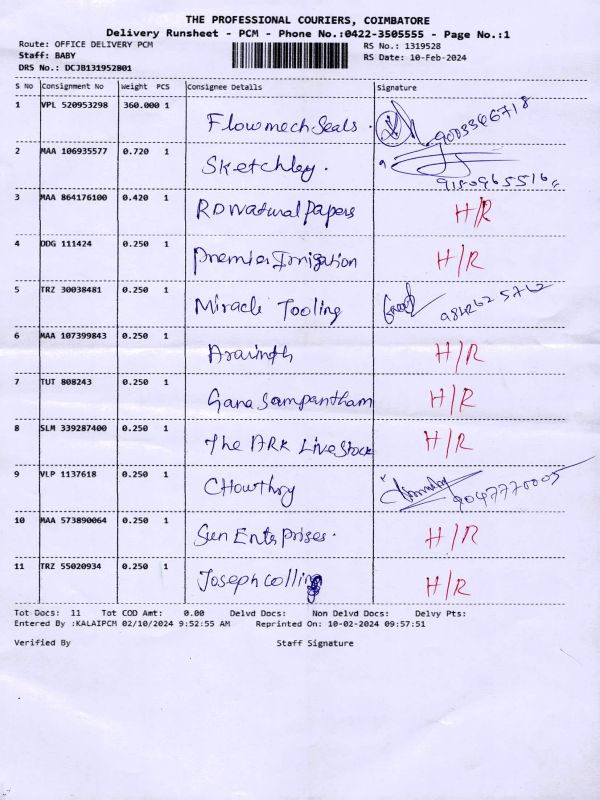 THE PROFESSIONAL COURIERS, COIMBATORE
Delivery Runsheet - PCM - Phone No.:0422-3505555 - Page No.:1
Route: OFFICE DELIVERY PCM RS No.: 1319528
Staff: BABY RS Date: 10-Feb-2024
DRS No.: DCJB131952801
S No Consignment No Weight PCS Consignee Details Signature
1 VPL 520953298 360.000 1 Flowmech Seals.
2 MAA 106935577 0.720 1 Sketchley.
3 MAA 864176100 0.420 1 RD Natural Papers H/R
4 DDG 111424 0.250 1 Premier Irrigation H/R
5 TRZ 30038481 0.250 1 Miracle Tooling
6 MAA 107399843 0.250 1 Aravinth H/R
7 TUT 808243 0.250 1 Gana Sampantham H/R
8 SLM 339287400 0.250 1 The ARK LiveStock H/R
9 VLP 1137618 0.250 1 CHowthry 9047770005
10 MAA 573890064 0.250 1 Sun Enterprises. H/R
11 TRZ 55020934 0.250 1 Joseph Collin H/R
Tot Docs: 11 Tot COD Amt: 0.00 Delvd Docs: Non Delvd Docs: Delvy Pts:
Entered By :KALAIPCM 02/10/2024 9:52:55 AM Reprinted On: 10-02-2024 09:57:51
Verified By Staff Signature